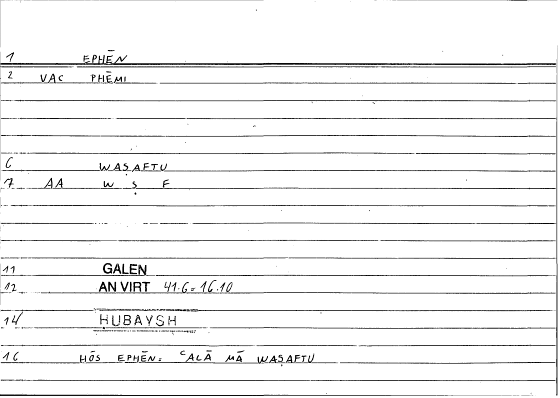 1 EPHĒN
2 VAC PHĒMI
6 WAṢAFTU
7 AA W Ṣ F
11 GALEN
12 AN VIRT 41.6 = 16.10
14 ḤUBAYSH
16 HŌS EPHĒN: ᶜALĀ MĀ WAṢAFTU